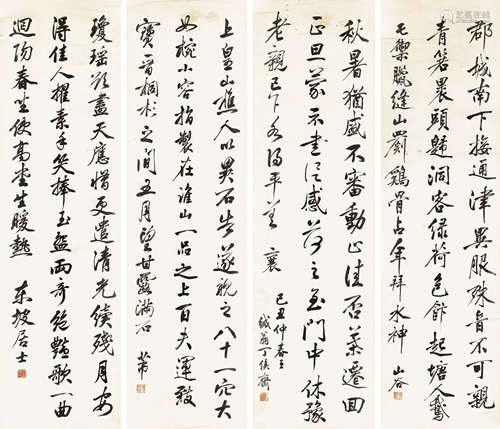 郡城南下接通津異服殊音不可親
青箬裹鹽歸洞客綠荷包飯趁墟人鵝
毛禦臘縫山罽鷄骨占年拜水神 山谷
秋暑猶盛不審動止佳否蒙遷回
正旦蒙示書感荷之至門中休豫
老親已下各得平善 襄
己丑仲春之
上皇山樵人以異石告遂視之八十一穴大
如椀小容指製在淮山一品之上百夫運致
寶晉桐杉之間五月望甘露滿石 芾
瓊瑤欲盡天應惜更遣清光續殘月安
得佳人擢素手笑捧玉盌兩奇絶豔歌一曲
迴陽春坐使高堂生暖熱 東坡居士